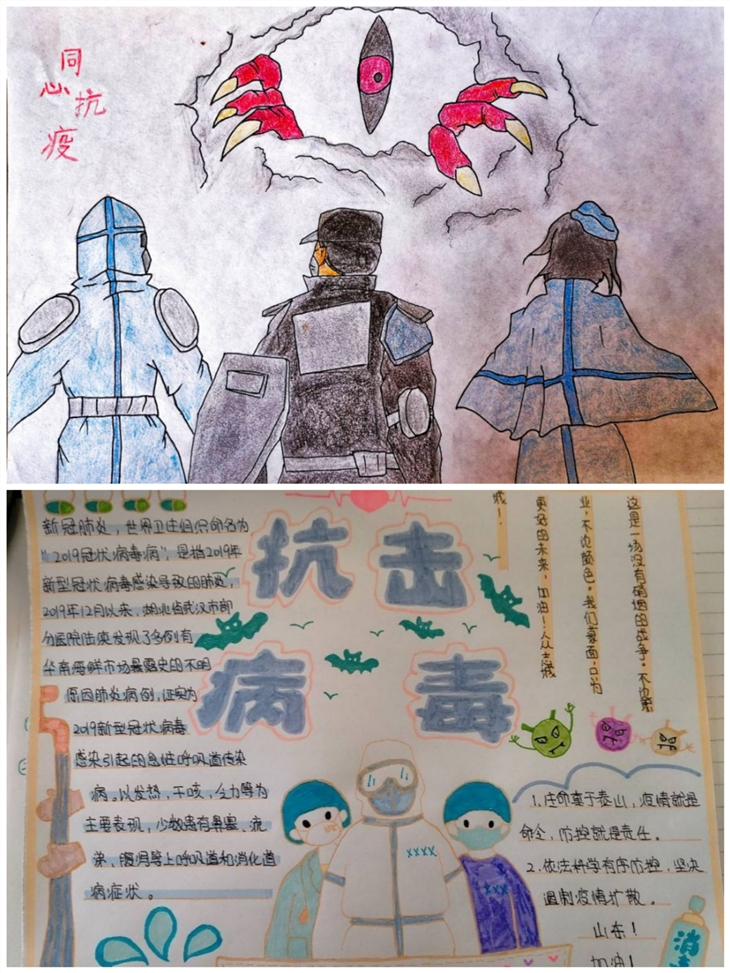 同心抗疫
新冠肺炎，世界卫生组织命名为
“2019冠状病毒病”，是指2019年
新型冠状病毒感染导致的肺炎，
2019年12月以来，湖北省武汉市部
分医院陆续发现了多例有
华南海鲜市场暴露史的不明
原因肺炎病例，证实为
2019新型冠状病毒
感染引起的急性呼吸道传染
病，以发热，干咳，乏力等为
主要表现，少数患有鼻塞、流
涕，腹泻等上呼吸道和消化道
病症状。
抗击
病毒
这是一场没有硝烟的战争。不论
业，不论颜色。我们蒙面，只为
更好的未来，加油！
城！
1.生命重于泰山，疫情就是
命令，防控就是责任。
2.依法科学有序防控，坚决
遏制疫情扩散。
山东！
加油！
消